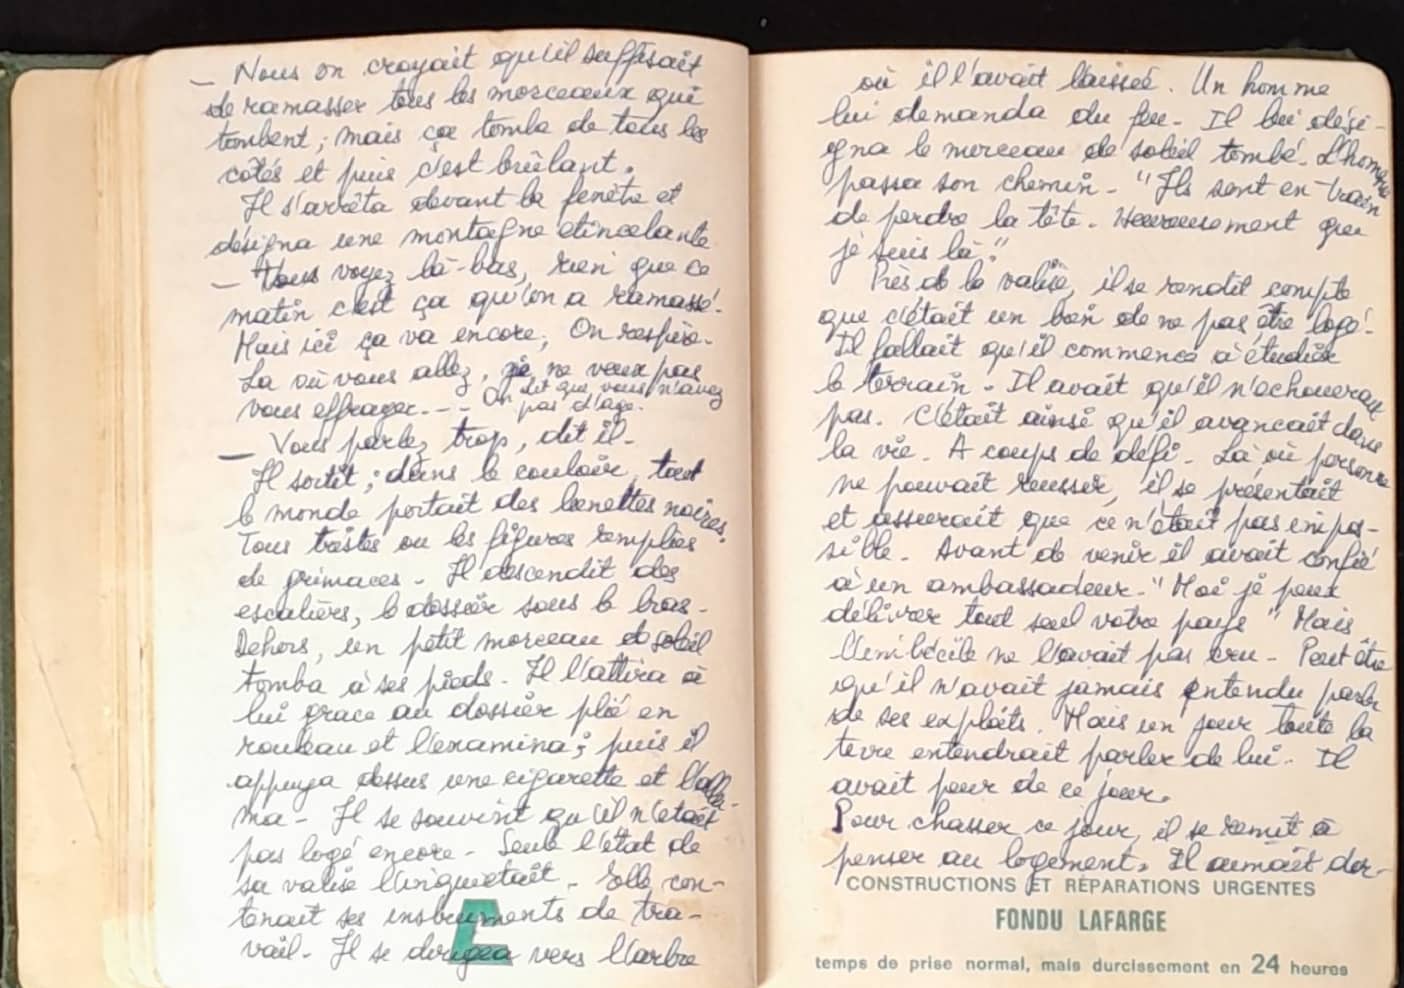 — Nous on croyait qu'il suffisait
de ramasser tous les morceaux qui
tombent ; mais ça tombe de tous les
côtés et puis c'est brûlant.
Il s'arrêta devant la fenête et
désigna une montagne étincelante
— Vous voyez là-bas, rien que ce
matin c'est ça qu'on a ramassé.
Mais ici ça va encore, On respire.
La où vous allez, je ne veux pas
vous effrayer... On dit que vous n'avez
pas d'age.
— Vous parlez trop, dit il.
Il sortit ; dans le couloir, tout
le monde portait des lunettes noires.
Tous tristes ou les figures remplies
de grimaces. Il descendit des
escaliers, le dossier sous le bras.
Dehors, un petit morceau de soleil
tomba à ses pieds. Il l'attira à
lui grace au dossier plié en
rouleau et l'examina ; puis il
appuya dessus une cigarette et l'allu-
ma. Il se souvint qu'il n'était
pas logé encore. Seul l'état de
sa valise l'inquiétait. Elle con-
tenait ses instruments de tra-
vail. Il se dirigea vers l'arbre
où il l'avait laissée. Un homme
lui demanda du feu. Il lui dési-
gna le morceau de soleil tombé. L'homme
passa son chemin. "Ils sont en train
de perdre la tête. Heureusement que
je suis là."
Près de la valise, il se rendit compte
que c'était un bon de ne pas être logé.
Il fallait qu'il commence à étudier
le terrain. Il savait qu'il n'échouerait
pas. C'était ainsi qu'il avancait dans
la vie. A coups de défi. Là où personne
ne pouvait reusser, il se présentait
et assurait que ce n'était pas impos-
sible. Avant de venir il avait confié
à un ambassadeur. "Moi je peux
délivrer tout seul votre pays" Mais
l'imbécile ne l'avait pas cru. Peut être
qu'il n'avait jamais entendu parler
de ses exploits. Mais un jour toute la
terre entendrait parler de lui. Il
avait peur de ce jour.
Pour chasser ce jour, il se remit à
penser au logement. Il aimait dor-
CONSTRUCTIONS ET RÉPARATIONS URGENTES
FONDU LAFARGE
temps de prise normal, mais durcissement en 24 heures